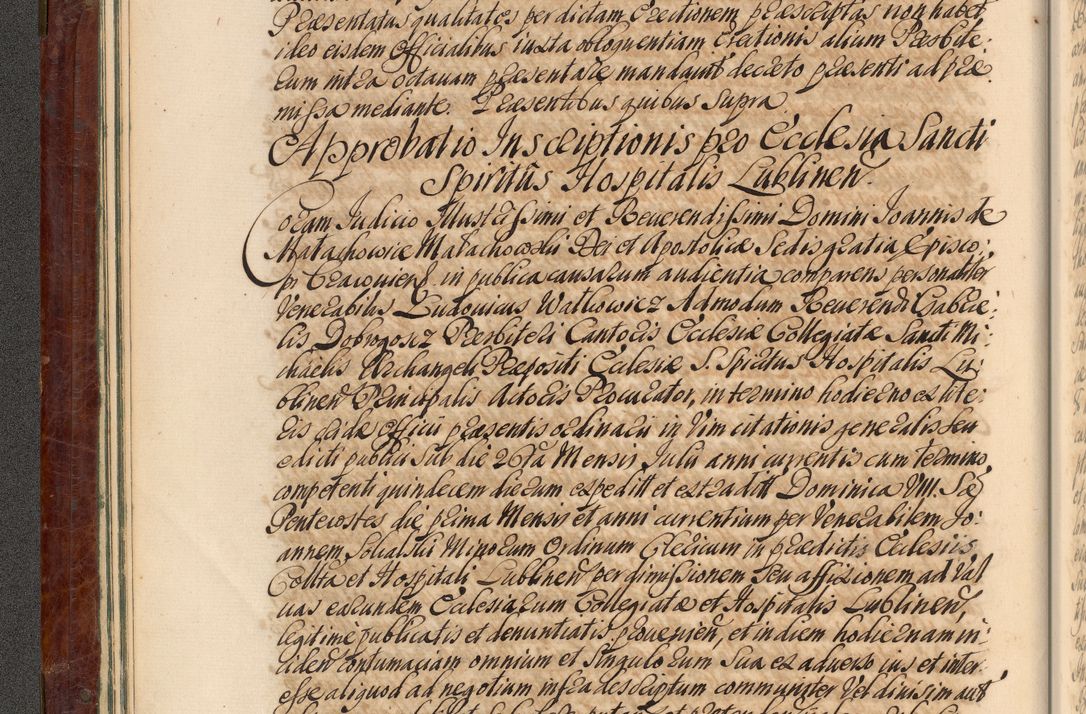 Praesentatus qualitates per dictam Erectionem praescriptas non habet,
ideo eisdem Officialibus iuxta obloquentiam Erectionis alium Presbite:
rum intra octavam praesentare mandavit decreto praesenti ad prae
missa mediante. Praesentibus quibus supra
Approbatio Inscriptionis pro Ecclesia Sancti
Spiritûs Hospitalis Lublinen.
Coram Iudicio Illustrissimi et Reverendissimi Domini Joannis de
Małachowice Małachowski Dei et Apostolicae Sedis gratia Episco:
pi Cracovien. in publica causarum audientia comparens personaliter
Venerabilis Ludovicus Watlowicz Admodum Reverendi Gabrie:
lis Dobrogosz Presbiteri Cantoris Ecclesiae Collegiatae Sancti Mi:
chaelis Archangeli Praepositi Ecclesiae S. Spiritus Hospitalis Lu:
blinen. Principalis Actoris Procurator, in termino hodierno ex lite:
ris officii praesentis ordinarii in vim citationis generalis seu
edicti publici sub die 26ta Mensis Julii anni currentis cum termino
competenti quindecem dierum expeditt et extraditt Dominica VIII. Sae
Pentecostes die prima Mensis et anni currentium per Venerabilem Jo:
annem Minorum Ordinum Clericum in praedictis Ecclesiis
Collta et Hospitali Lublinen. per dimissionem seu affixionem ad Val
vas earundem Ecclesiarum Collegiatae et Hospitalis Lublinen,
legitime publicatis et denuntiatis provenien, et in diem hodiernam in:
ciden contumaciam omnium et singulorum sua ex adverso ius et inter:
esse aliquod ad negotium infra descriptum communiter vel divisim aut